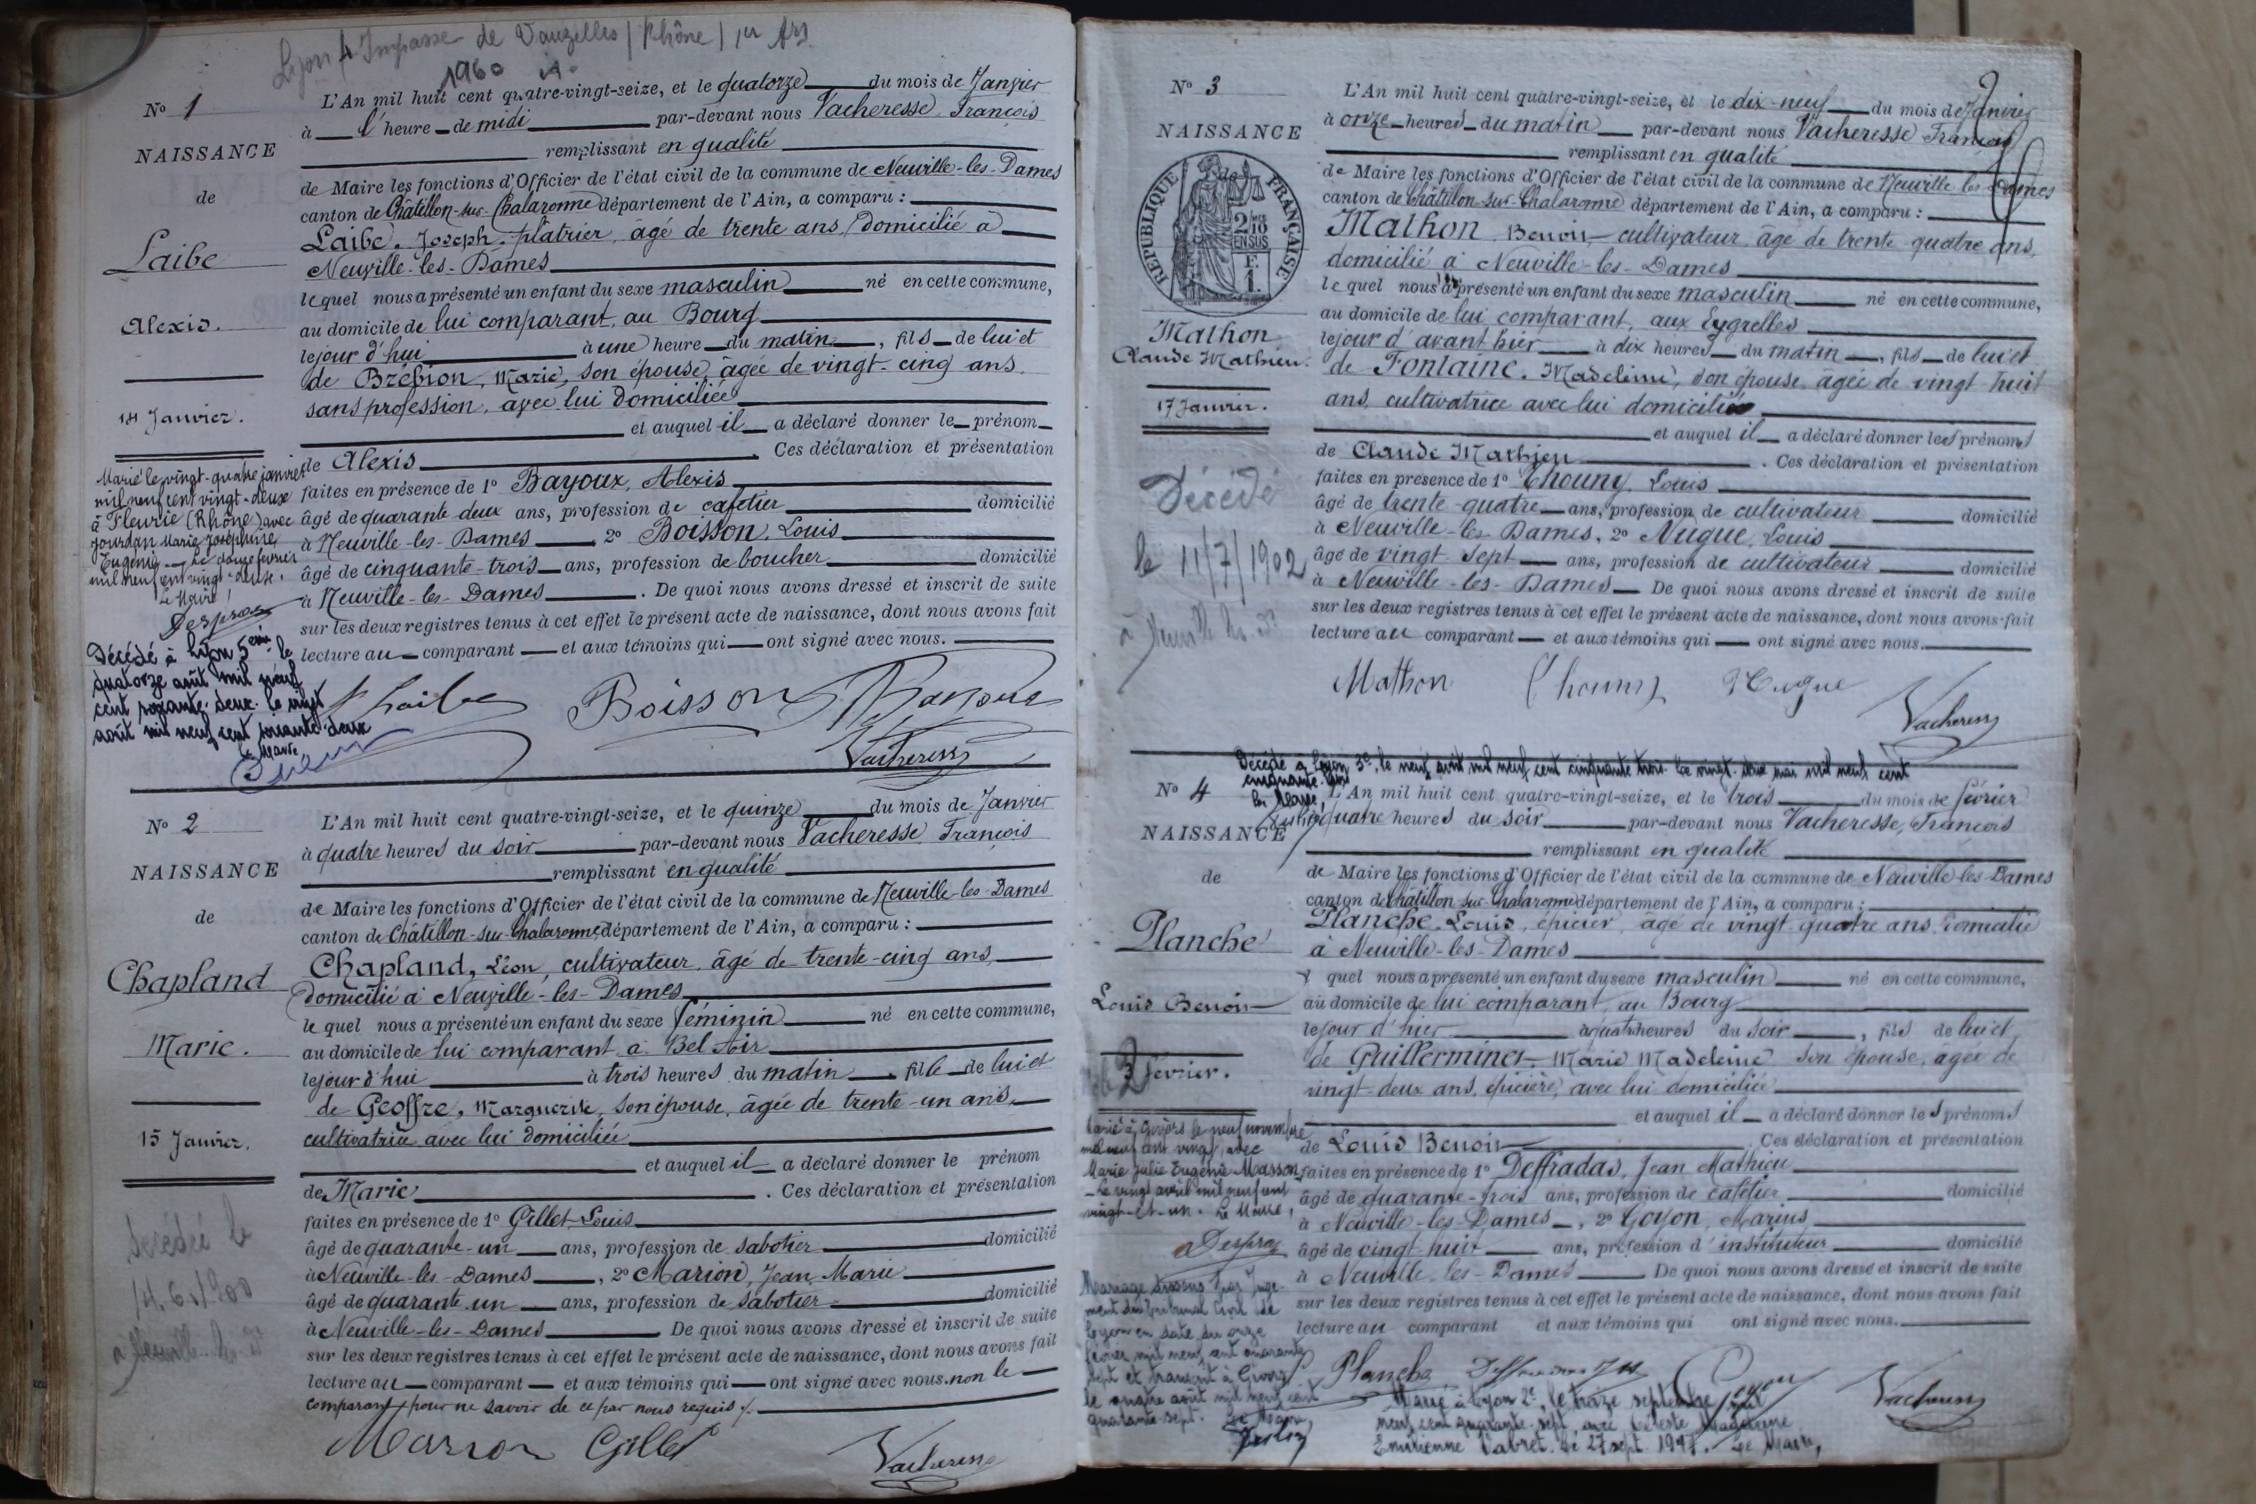 Lyon 4 Impasse de Vauzelles (Rhône) 1er Arr.
1960
N° 1
NAISSANCE
de
Laibe
Alexis.
14 Janvier.
Marié le vingt-quatre janvier
mil neuf cent vingt-deux
à Fleurie (Rhône) avec
Jourdan Marie Joséphine
Eugénie — Le douze février
mil neuf cent vingt-deux.
Le Maire,
Despras
Décédé à Lyon 5eme le
quatorze août mil neuf
cent soixante-deux. Le vingt
août mil neuf cent soixante-deux
Le Maire
L'An mil huit cent quatre-vingt-seize, et le quatorze du mois de Janvier
à l'heure de midi par-devant nous Vacheresse, François
remplissant en qualité
de Maire les fonctions d'Officier de l'état civil de la commune de Neuville-les-Dames
canton de Châtillon-sur-Chalaronne département de l'Ain, a comparu :
Laibe, Joseph, plâtrier, âgé de trente ans, domicilié à
Neuville-les-Dames
lequel nous a présenté un enfant du sexe masculin né en cette commune,
au domicile de lui comparant, au Bourg
le jour d'hui à une heure du matin, fils de lui et
de Brébion, Marie, son épouse, âgée de vingt-cinq ans,
sans profession, avec lui domiciliée
et auquel il a déclaré donner le prénom
de Alexis. Ces déclaration et présentation
faites en présence de 1° Bayoux, Alexis
âgé de quarante deux ans, profession de cafetier domicilié
à Neuville-les-Dames, 2° Boisson, Louis
âgé de cinquante-trois ans, profession de boucher domicilié
à Neuville-les-Dames. De quoi nous avons dressé et inscrit de suite
sur les deux registres tenus à cet effet le présent acte de naissance, dont nous avons fait
lecture au comparant et aux témoins qui ont signé avec nous.
Laibe Boisson Bayoux
Vacheresse
N° 2
NAISSANCE
de
Chapland
Marie.
15 Janvier.
Décédée le
14.6.1900
à Neuville-les-Ds
L'An mil huit cent quatre-vingt-seize, et le quinze du mois de Janvier
à quatre heures du soir par-devant nous Vacheresse, François
remplissant en qualité
de Maire les fonctions d'Officier de l'état civil de la commune de Neuville-les-Dames
canton de Châtillon-sur-Chalaronne département de l'Ain, a comparu :
Chapland, Léon, cultivateur, âgé de trente-cinq ans,
domicilié à Neuville-les-Dames
le quel nous a présenté un enfant du sexe féminin né en cette commune,
au domicile de lui comparant à Bel Air
le jour d'hui à trois heures du matin, fille de lui et
de Geoffre, Marguerite, son épouse, âgée de trente-un ans,
cultivatrice avec lui domiciliée
et auquel il a déclaré donner le prénom
de Marie. Ces déclaration et présentation
faites en présence de 1° Gillet Louis
âgé de quarante-un ans, profession de sabotier domicilié
à Neuville-les-Dames, 2° Marion, Jean Marie
âgé de quarante un ans, profession de sabotier domicilié
à Neuville-les-Dames De quoi nous avons dressé et inscrit de suite
sur les deux registres tenus à cet effet le présent acte de naissance, dont nous avons fait
lecture au comparant et aux témoins qui ont signé avec nous. non le
comparant pour ne savoir de ce par nous requis.
Marion Gillet
Vacheresse
N° 3
NAISSANCE
de
RÉPUBLIQUE FRANÇAISE
2/10
EN SUS
F.
1.
Mathon
Claude Mathieu.
17 Janvier.
Décédé
le 11/7/1902
à Neuville les Ds
L'An mil huit cent quatre-vingt-seize, et le dix-neuf du mois de Janvier
à onze heures du matin par-devant nous Vacheresse, François
remplissant en qualité
de Maire les fonctions d'Officier de l'état civil de la commune de Neuville-les-Dames
canton de Châtillon-sur-Chalaronne département de l'Ain, a comparu :
Mathon, Benoit, cultivateur, âgé de trente quatre ans,
domicilié à Neuville-les-Dames
le quel nous a présenté un enfant du sexe masculin né en cette commune,
au domicile de lui comparant, aux Eygrelles
le jour d'avant hier à dix heures du matin, fils de lui et
de Fontaine, Madeleine, son épouse, âgée de vingt huit
ans, cultivatrice avec lui domiciliée
et auquel il a déclaré donner les prénoms
de Claude Mathieu. Ces déclaration et présentation
faites en présence de 1° Chouny, Louis
âgé de trente-quatre ans, profession de cultivateur domicilié
à Neuville-les-Dames, 2° Nugue, Louis
âgé de vingt-sept ans, profession de cultivateur domicilié
à Neuville-les-Dames De quoi nous avons dressé et inscrit de suite
sur les deux registres tenus à cet effet le présent acte de naissance, dont nous avons fait
lecture au comparant et aux témoins qui ont signé avec nous.
Mathon Chouny Nugue
Vacheresse
Décédé à Lyon 3e, le neuf avril mil neuf cent cinquante trois. Le vingt-deux mai mil neuf cent
cinquante-trois
Le Maire,
N° 4
NAISSANCE
de
Planche
Louis Benoit
2 février.
Marié à Givors le neuf novembre
mil neuf cent vingt, avec
Marie Julie Eugénie Masson
— Le vingt avril mil neuf cent
vingt-et-un. Le Maire,
Despras
Mariage dissous par Juge-
ment du Tribunal Civil de
Lyon en date du onze
février mil neuf cent quarante
sept et transcrit à Givors
le quatre août mil neuf cent
quarante-sept. Le Maire,
L'An mil huit cent quatre-vingt-seize, et le trois du mois de février
quatre heures du soir par-devant nous Vacheresse, François
remplissant en qualité
de Maire les fonctions d'Officier de l'état civil de la commune de Neuville-les-Dames
canton de Châtillon-sur-Chalaronne département de l'Ain, a comparu :
Planche, Louis, épicier, âgé de vingt quatre ans, domicilié
à Neuville-les-Dames
quel nous a présenté un enfant du sexe masculin né en cette commune,
au domicile de lui comparant, au Bourg
le jour d'hier à quatre heures du soir, fils de lui et
de Guillerminet, Marie Madeleine son épouse, âgée de
vingt-deux ans, épicière, avec lui domiciliée
et auquel il a déclaré donner les prénoms
de Louis Benoit. Ces déclaration et présentation
faites en présence de 1° Deffradas, Jean Mathieu
âgé de quarante-trois ans, profession de cafetier domicilié
à Neuville-les-Dames, 2° Goyon, Marius
âgé de vingt huit ans, profession d'instituteur domicilié
à Neuville-les-Dames De quoi nous avons dressé et inscrit de suite
sur les deux registres tenus à cet effet le présent acte de naissance, dont nous avons fait
lecture au comparant et aux témoins qui ont signé avec nous.
Planche Deffradas JM Goyon Vacheresse
Marié à Lyon 2e, le treize septembre mil
neuf cent quarante-sept avec Céleste Madeleine
Emilienne Vabret. Le 27 sept. 1947. Le Maire,